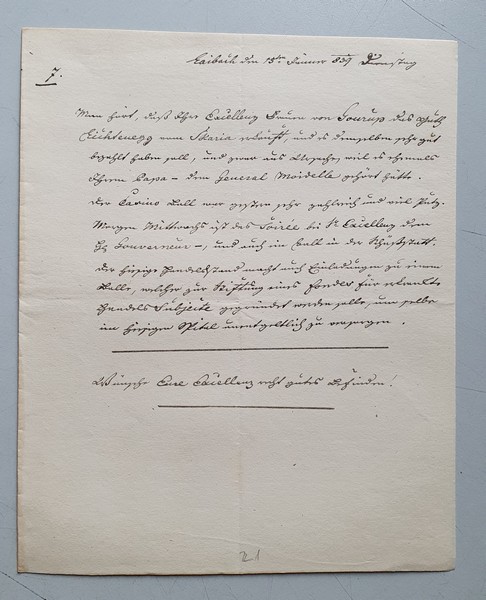 7.
Laibach den 15ten Jänner 839 Dienstag
Man hört, daß Ihre Excellenz Frauen von das Guth
Lichtenegg vom Skaria erkauft, und es demselben sehr gut
bezahlt haben soll, und zwar aus Ursache, weil es ehemals
Ihrem Papa – dem General gehört hatte.
Der Casino Ball war gestern sehr zahlreich und viel Putz.
Morgen Mittwochs ist das Soirée bei Sr Excellenz dem
H: Gouverneur –, und auch ein Ball in der Schießstatt.
Der hiesige Handelsstand macht auch Einladungen zu einem
Balle, welcher zur Stiftung eines Fondes für erkrankte
Handels Subjecte gegründet werden solle, um selbe
im hiesigen Spital unentgeltlich zu versorgen.
Wünsche Eure Excellenz recht gutes Befinden!
21